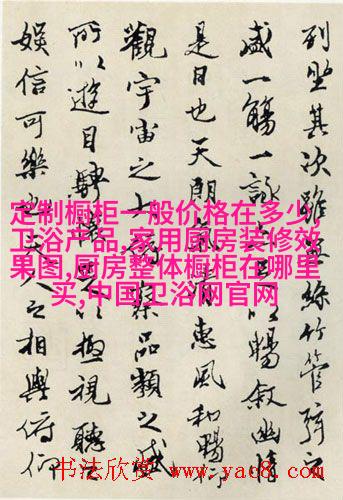 列坐其次雖無絲竹管弦之
盛一觴一詠亦足以暢敘幽情
是日也天朗氣清惠風和暢仰
觀宇宙之大俯察品類之盛
所以遊目騁懷足以極視聽之
娛信可樂也夫人之相與俯仰
定制橱柜一般价格在多少,
卫浴产品,家用厨房装修效
果图,厨房整体橱柜在哪里
买,中国卫浴网官网
书法欣赏 www.yac8.com